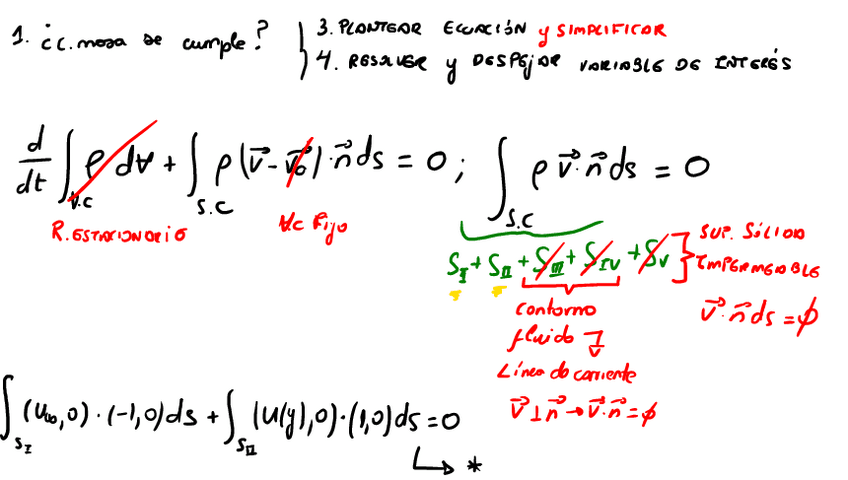 1. ¿C. masa se cumple?
3. PLANTEAR ECUACIÓN y SIMPLIFICAR
4. RESOLVER y DESPEJAR VARIABLE DE INTERÉS
d/dt ∫_{V.C} ρ dV + ∫_{S.C} ρ (v⃗ - v⃗₀) · n⃗ ds = 0 ; ∫_{S.C} ρ v⃗ · n⃗ ds = 0
R. ESTACIONARIO
V.C Fijo
S_I + S_II + S_III + S_IV + S_V
SUP. SÓLIDA
IMPERMEABLE
v⃗ · n⃗ ds = ϕ
contorno
fluido y
Línea de corriente
v⃗ ⊥ n⃗ → v⃗ · n⃗ = ϕ
∫_{S_I} (U∞, 0) · (-1, 0) ds + ∫_{S_II} (U(y), 0) · (1, 0) ds = 0
↳ *